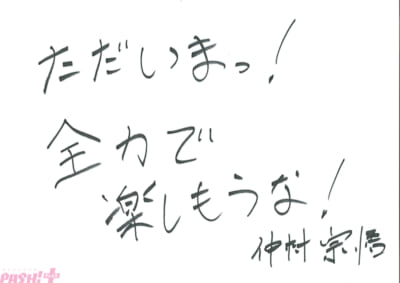 ただいまっ!
全力で
楽しもうな!
仲村宗悟
PASH!+